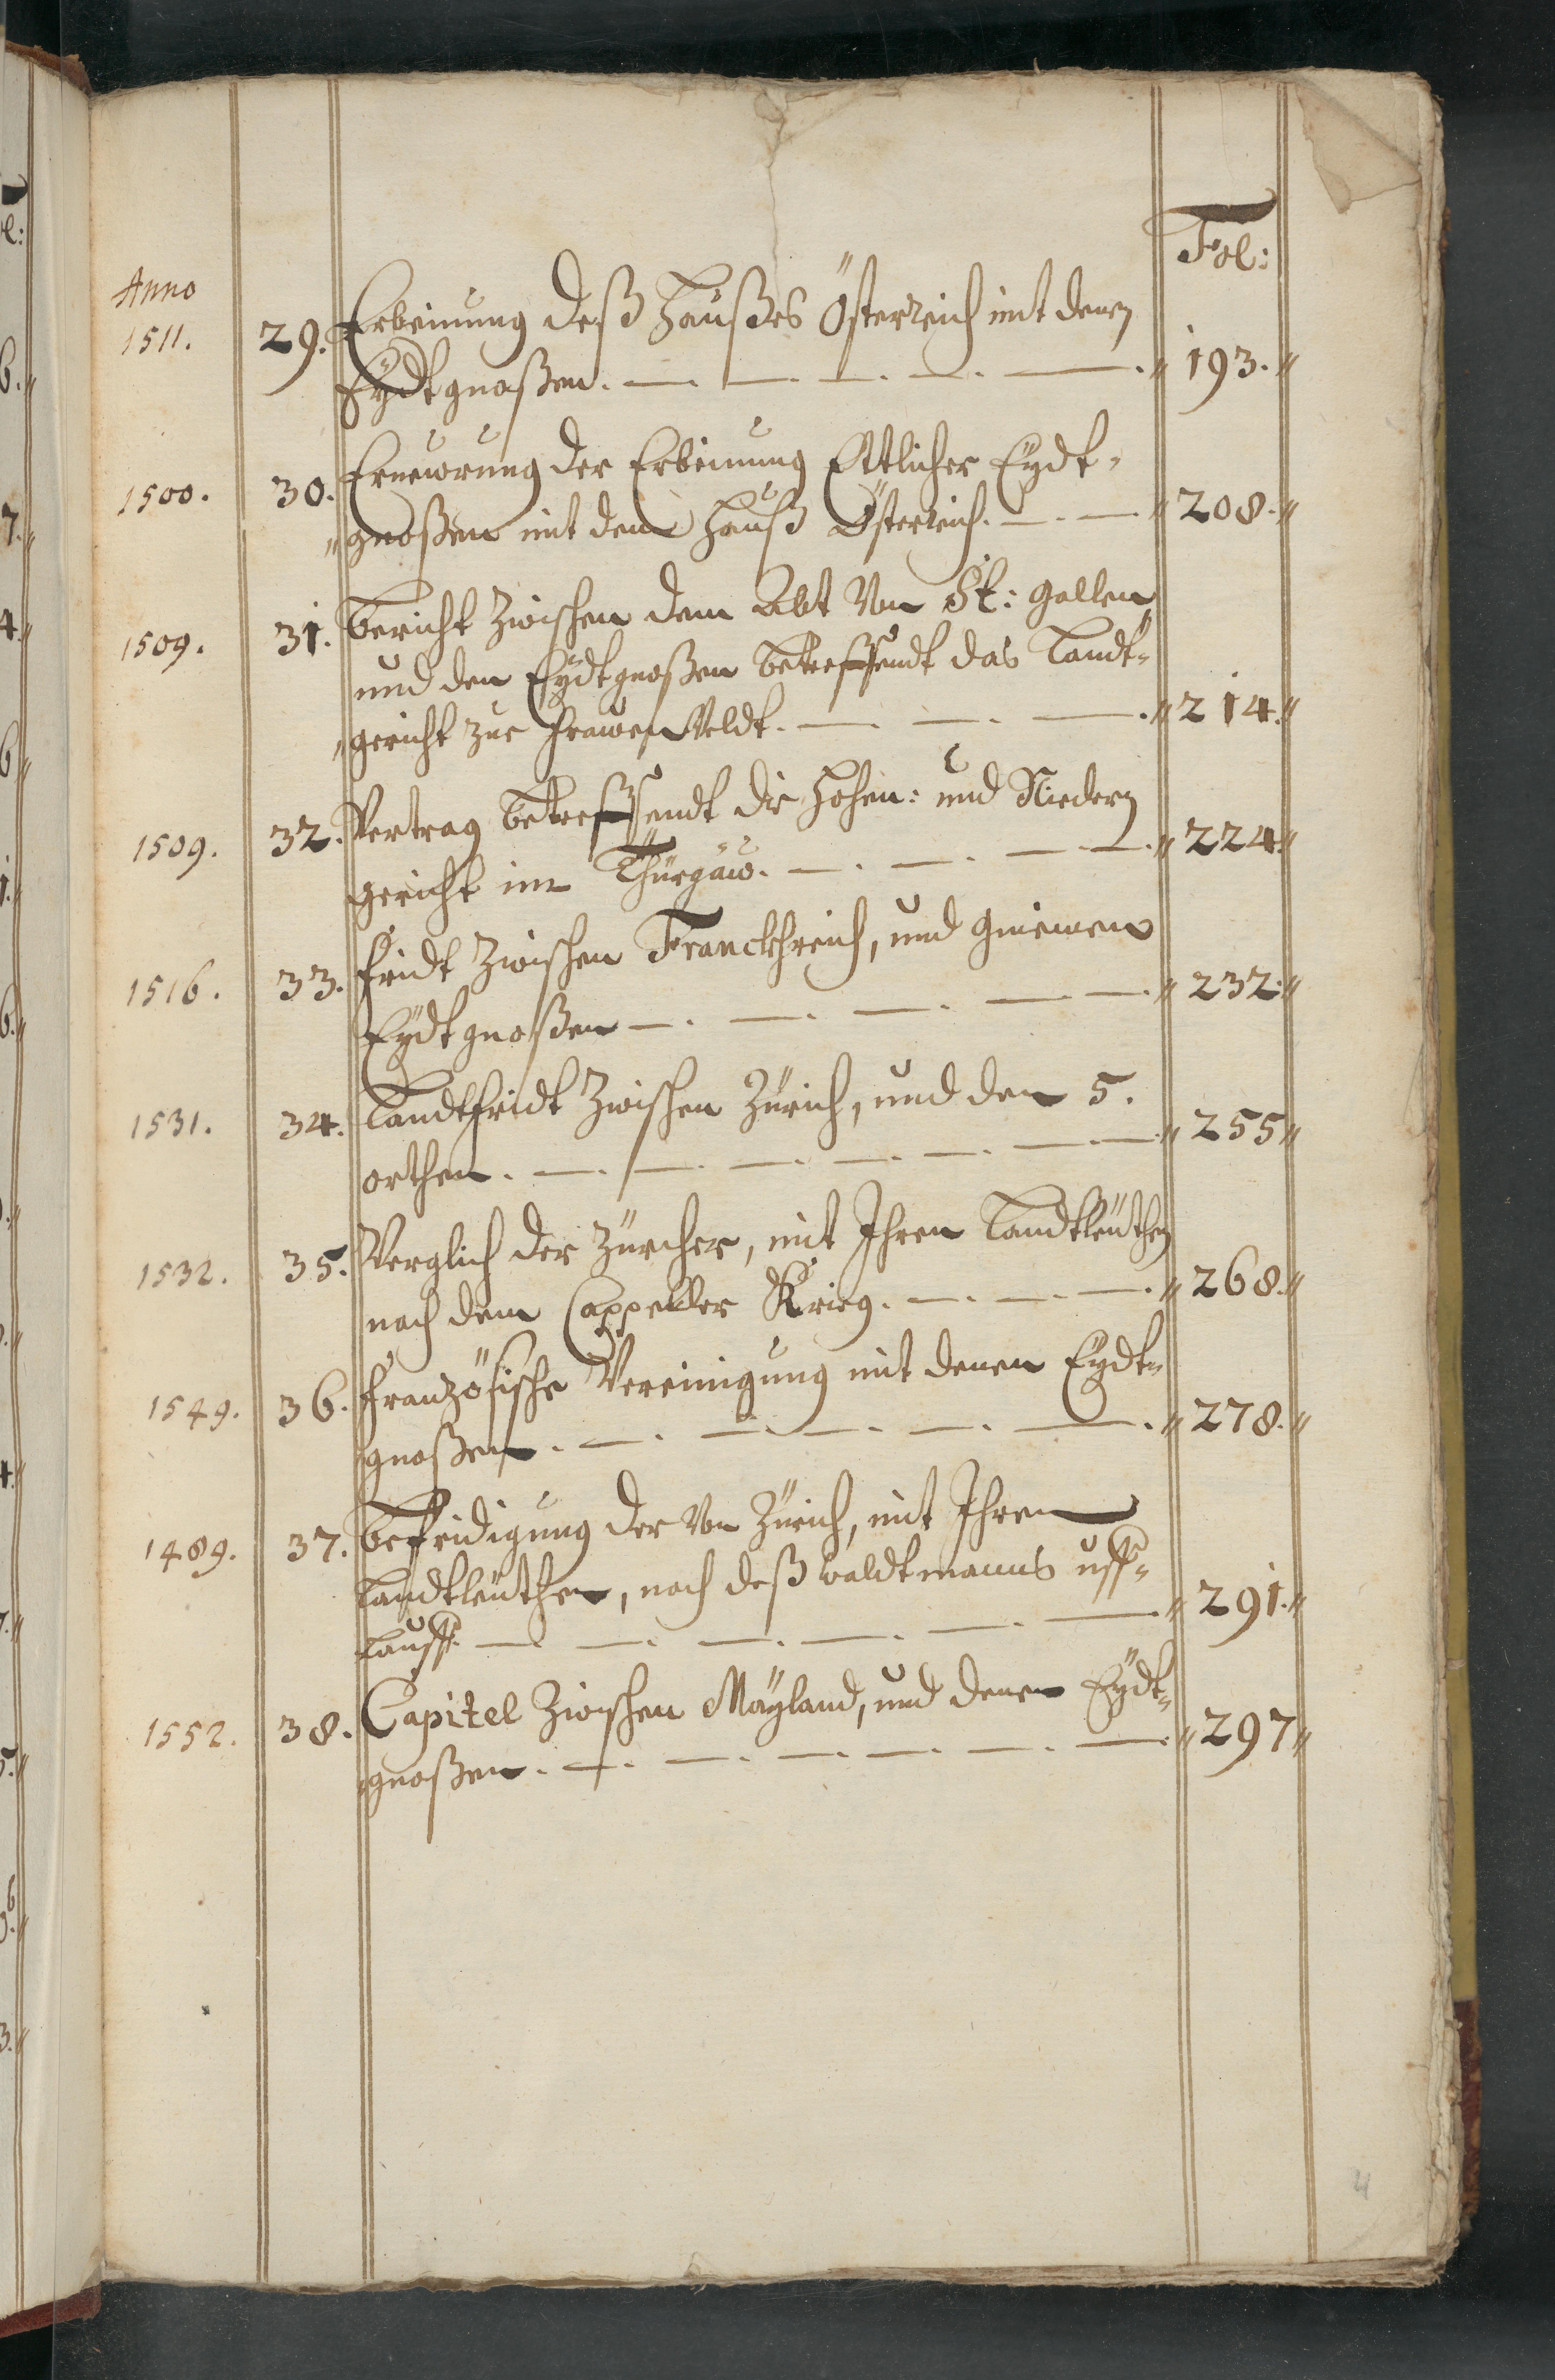 Fol:
Anno
1511. 29. Erbeinung deß Haußes Österreich mit denen
Eydtgnoßen. 193.
1500. 30. Erneworung der Erbeinung Ettlicher Eydt-
gnoßen mit dem Hauß Österreich. 208.
1509. 31. Bericht zwischen dem Abt Von St: Gallen
und den Eydtgnoßen betreffendt das Landt-
gericht zue Frawenveldt. 214.
1509. 32. Vertrag betreffendt die Hohen: und Niedern
gericht im Thürgäw. 224.
1516. 33. Fridt zwischen Franckhreich, und gmeinen
Eydtgnoßen 232.
1531. 34. Landtfridt zwischen Zürich, und den 5.
orthen. 255
1532. 35. Verglich der Zürcher, mit Ihren Landtleüthen
nach dem Cappeller Krieg. 268.
1549. 36. Französische Vereinigung mit denen Eydt-
gnoßen. 278.
1489. 37. Befridigung der Von Zürich, mit Ihren
Landtleüthen, nach deß waldtmanns uff-
lauff. 291.
1552. 38. Capitel zwischen Mäyland, und denen Eydt-
gnoßen. 297
4